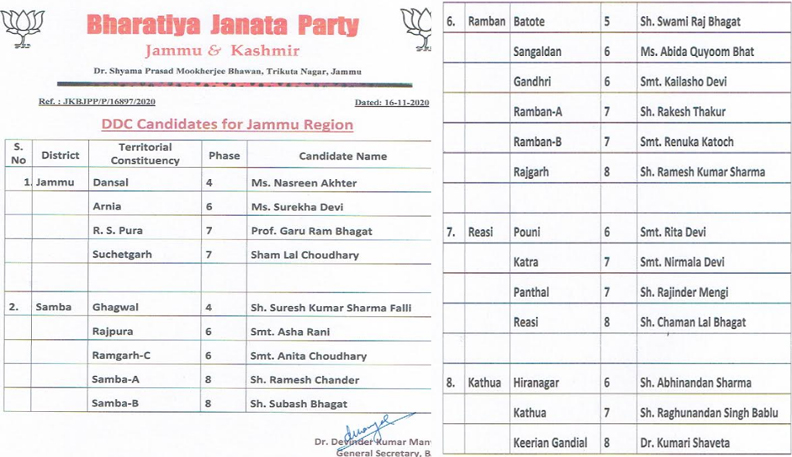 Bharatiya Janata Party
Jammu & Kashmir
Dr. Shyama Prasad Mookherjee Bhawan, Trikuta Nagar, Jammu
Ref. : JKBJPP/P/16897/2020 Dated: 16-11-2020
DDC Candidates for Jammu Region
S. No District Territorial Constituency Phase Candidate Name
1. Jammu Dansal 4 Ms. Nasreen Akhter
Arnia 6 Ms. Surekha Devi
R. S. Pura 7 Prof. Garu Ram Bhagat
Suchetgarh 7 Sham Lal Choudhary
2. Samba Ghagwal 4 Sh. Suresh Kumar Sharma Falli
Rajpura 6 Smt. Asha Rani
Ramgarh-C 6 Smt. Anita Choudhary
Samba-A 8 Sh. Ramesh Chander
Samba-B 8 Sh. Subash Bhagat
Dr. Devinder Kumar
General Secretary,
6. Ramban Batote 5 Sh. Swami Raj Bhagat
Sangaldan 6 Ms. Abida Quyoom Bhat
Gandhri 6 Smt. Kailasho Devi
Ramban-A 7 Sh. Rakesh Thakur
Ramban-B 7 Smt. Renuka Katoch
Rajgarh 8 Sh. Ramesh Kumar Sharma
7. Reasi Pouni 6 Smt. Rita Devi
Katra 7 Smt. Nirmala Devi
Panthal 7 Sh. Rajinder Mengi
Reasi 8 Sh. Chaman Lal Bhagat
8. Kathua Hiranagar 6 Sh. Abhinandan Sharma
Kathua 7 Sh. Raghunandan Singh Bablu
Keerian Gandial 8 Dr. Kumari Shaveta